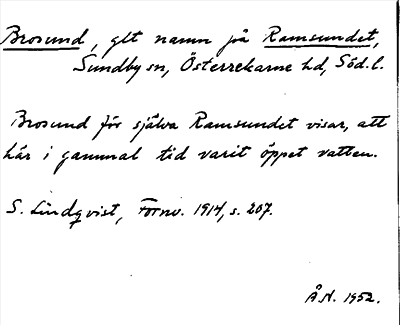 Brosund, glt namn på Ramsundet,
Sundby sn, Österrekarne hd, Söd. l.
Brosund för själva Ramsundet visar, att
här i gammal tid varit öppet vatten.
S. Lindqvist, Fornv. 1914, s. 207.
Å.N. 1952.